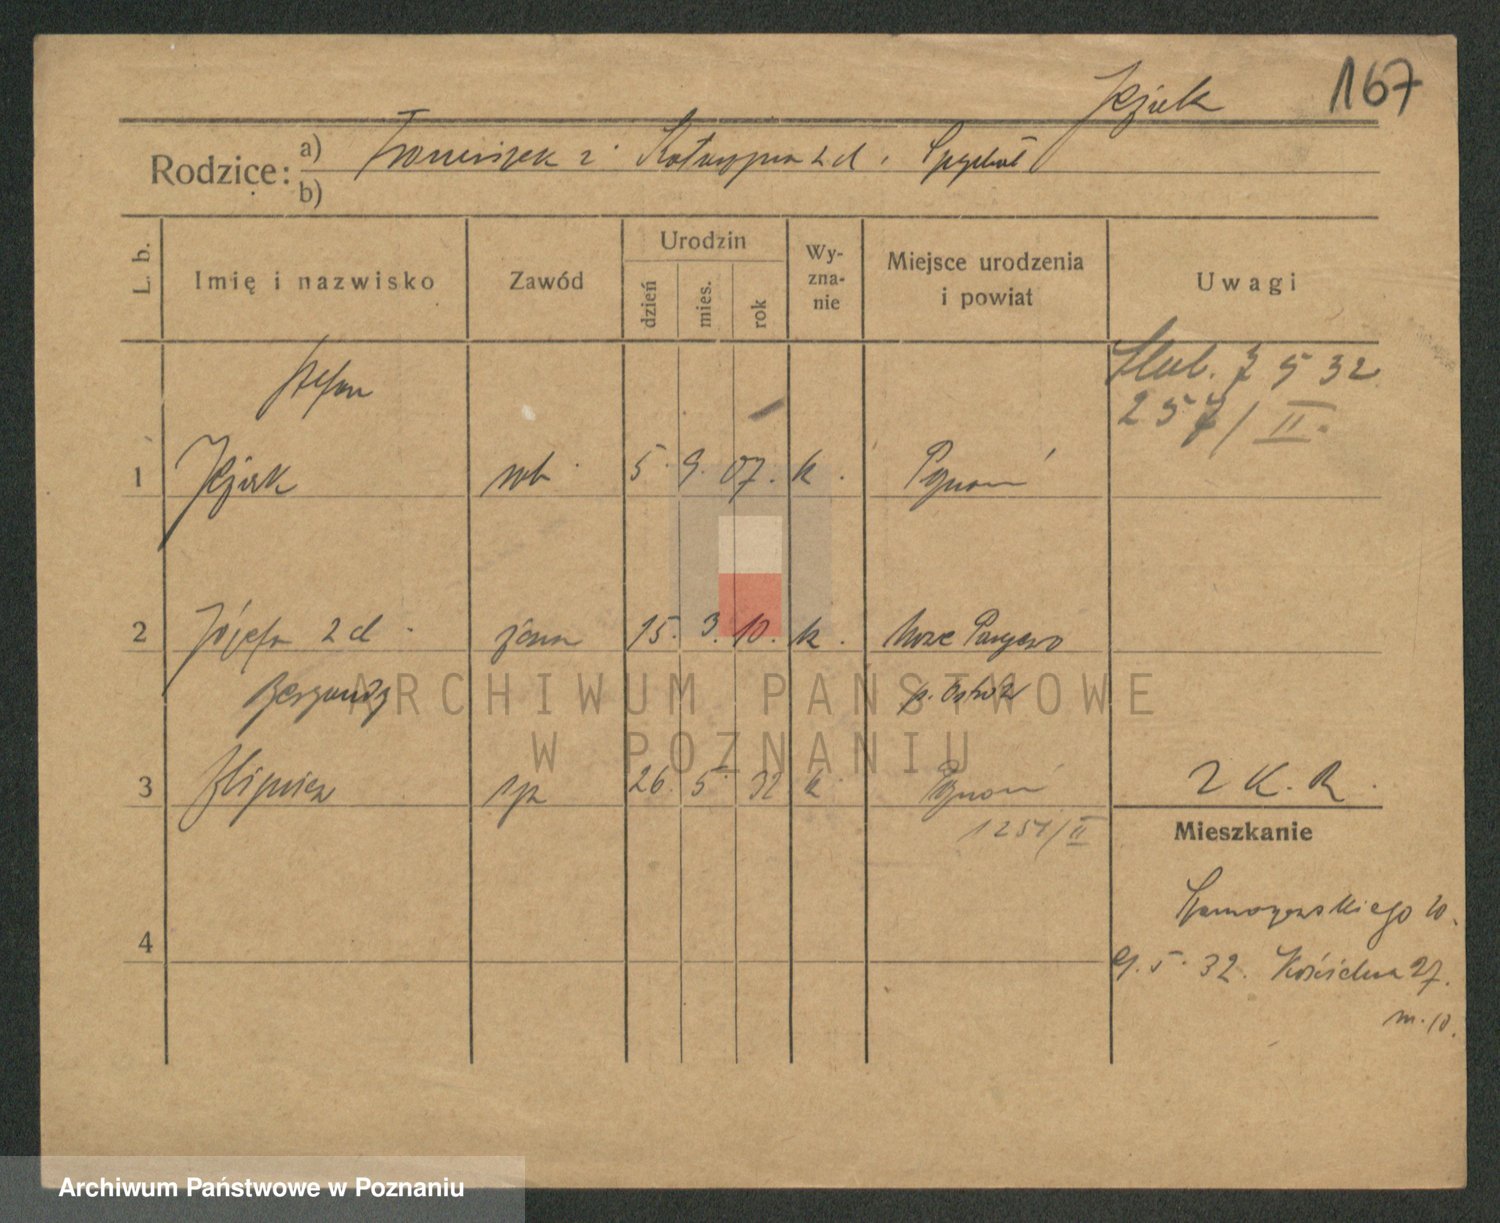 167
Jezierk
Rodzice: a) Franciszek i Katarzyna z d.
b)
L. b. Imię i nazwisko Zawód Urodzin dzień mies. rok Wyznanie Miejsce urodzenia i powiat Uwagi
Stefan
Ślub. 7 5 32
257/II.
1 rob. 5. 9. 07. k. Poznań
2 Józefa z d. żona 15. 3. 10. k. Nowe
p. Ostrów
3 Zbigniew syn 26. 5. 32 k. Poznań
1251/II
2 K. R.
Mieszkanie
4
9. 5. 32. Kościelna 27.
m. 10.
ARCHIWUM PAŃSTWOWE
W POZNANIU
Archiwum Państwowe w Poznaniu